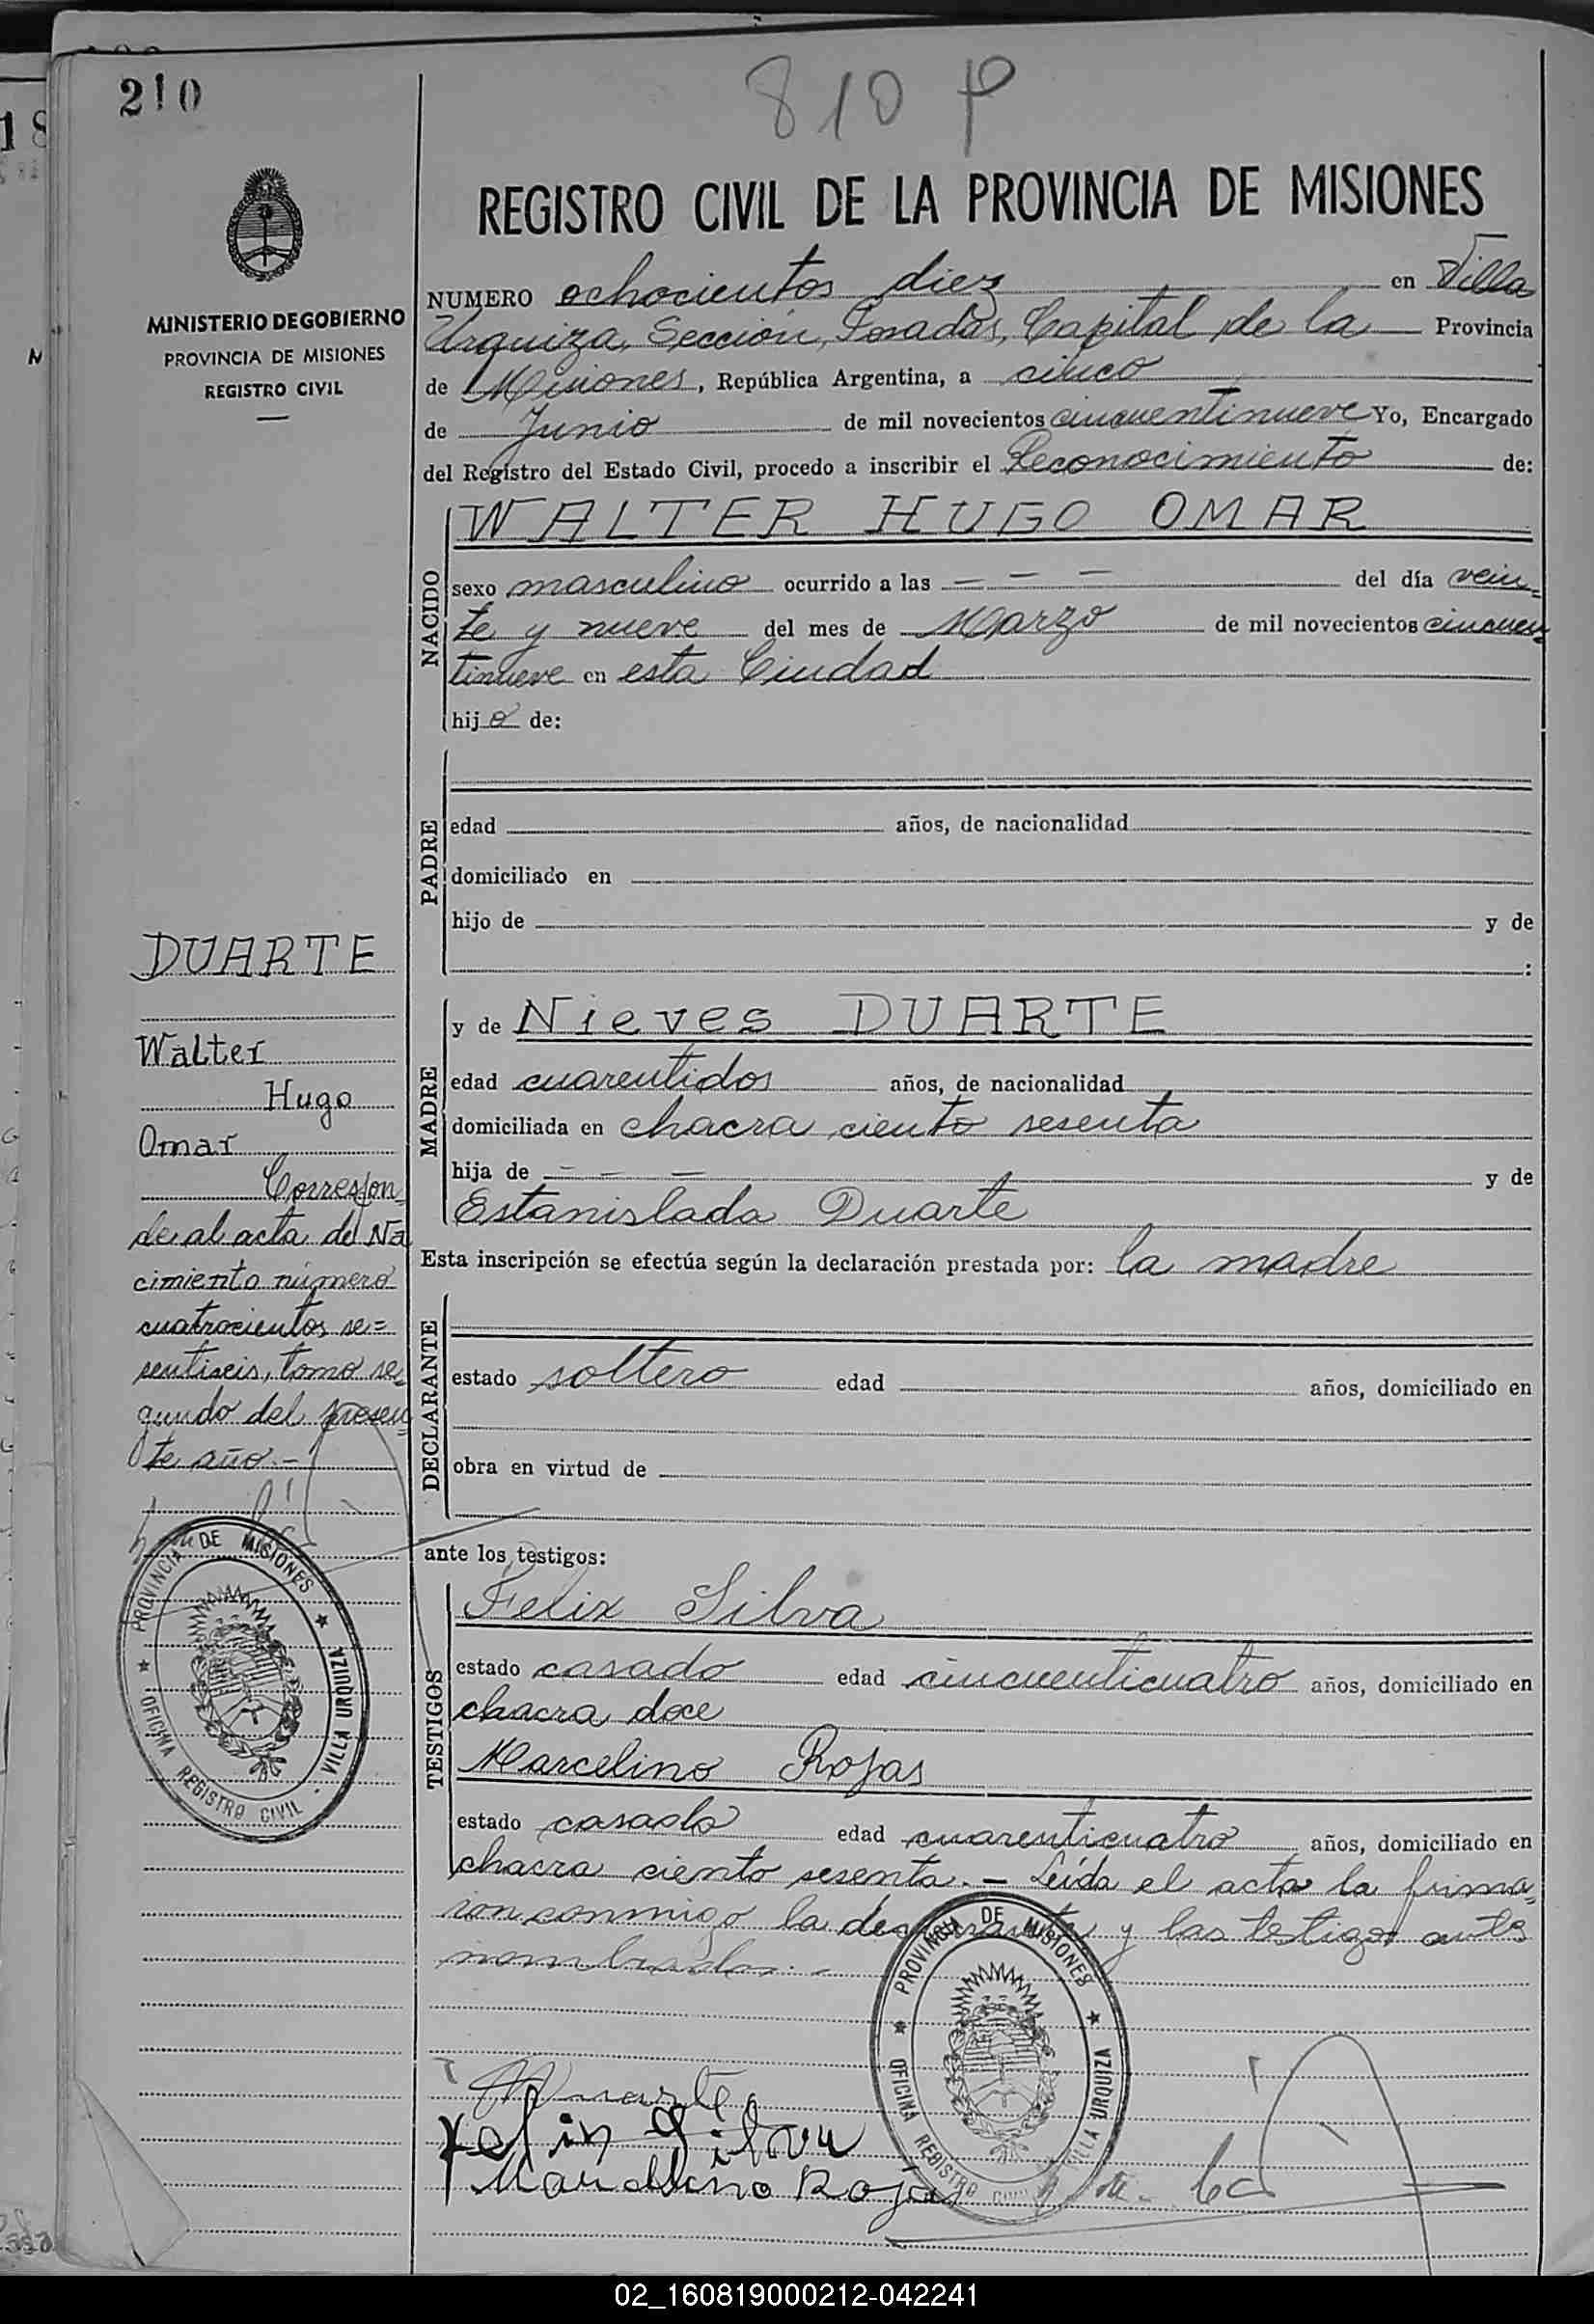 210
810 P
REGISTRO CIVIL DE LA PROVINCIA DE MISIONES
MINISTERIO DE GOBIERNO
PROVINCIA DE MISIONES
REGISTRO CIVIL
NUMERO ochocientos diez en Villa
Urquiza, Sección, Posadas, Capital de la Provincia
de Misiones, República Argentina, a cinco
de Junio de mil novecientos cincuentinueve Yo, Encargado
del Registro del Estado Civil, procedo a inscribir el Reconocimiento de:
NACIDO
WALTER HUGO OMAR
sexo masculino ocurrido a las — — — del día vein=
te y nueve del mes de Marzo de mil novecientos cincuen
tinueve en esta Ciudad
hijo de:
PADRE
edad años, de nacionalidad
domiciliado en
hijo de y de
:
MADRE
y de Nieves DUARTE
edad cuarentidos años, de nacionalidad
domiciliada en chacra ciento sesenta
hija de — — — y de
Estanislada Duarte
Esta inscripción se efectúa según la declaración prestada por: la madre
DECLARANTE
estado soltero edad años, domiciliado en
obra en virtud de
ante los testigos:
TESTIGOS
Felix Silva
estado casado edad cincuenticuatro años, domiciliado en
chacra doce
Marcelino Rojas
estado casado edad cuarenticuatro años, domiciliado en
chacra ciento sesenta.— Leída el acta la firma=
ron conmigo la declarante y los testigos ante
nombrados.-
DUARTE
Walter
Hugo
Omar
Correspon=
de al acta de Na
cimiento número
cuatrocientos se=
sentiseis, tomo se=
gundo del presen=
te año.-
PROVINCIA DE MISIONES
OFICINA REGISTRO CIVIL - VILLA URQUIZA
NDuarte
Felix Silva
Marcelino Rojas
PROVINCIA DE MISIONES
OFICINA REGISTRO CIVIL VILLA URQUIZA
02_160819000212-042241